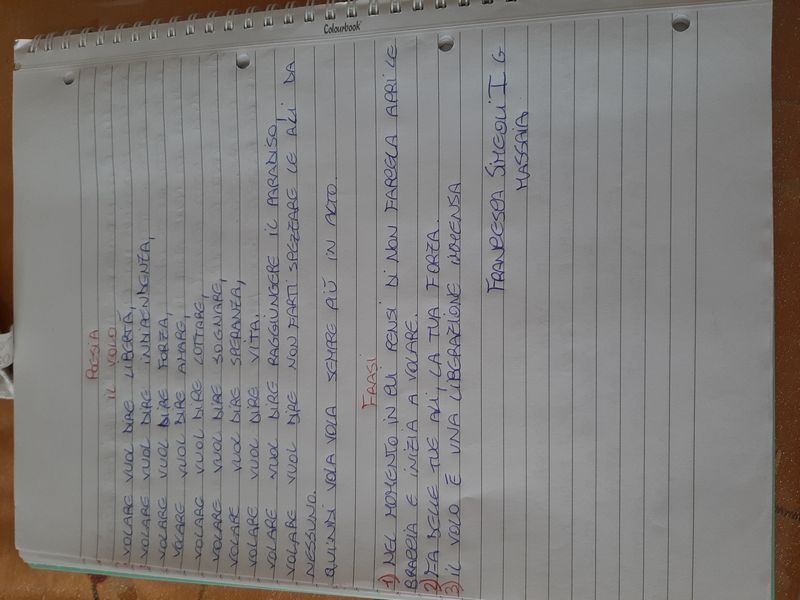 Colourbook
POESIA
IL VOLO
VOLARE VUOL DIRE LIBERTÀ,
VOLARE VUOL DIRE INDIPENDENZA,
VOLARE VUOL DIRE FORZA,
VOLARE VUOL DIRE AMARE,
VOLARE VUOL DIRE LOTTARE,
VOLARE VUOL DIRE SOGNARE,
VOLARE VUOL DIRE SPERANZA,
VOLARE VUOL DIRE VITA.
VOLARE VUOL DIRE RAGGIUNGERE IL PARADISO,
VOLARE VUOL DIRE NON FARTI SPEZZARE LE ALI DA
NESSUNO.
QUINDI VOLA VOLA SEMPRE PIÙ IN ALTO.
FRASI
1) NEL MOMENTO IN CUI PENSI DI NON FARCELA APRI LE
BRACCIA E INIZIA A VOLARE.
2) FA DELLE TUE ALI, LA TUA FORZA.
3) IL VOLO È UNA LIBERAZIONE IMMENSA
FRANCESCA SIMEOLI I G
MASSAIA